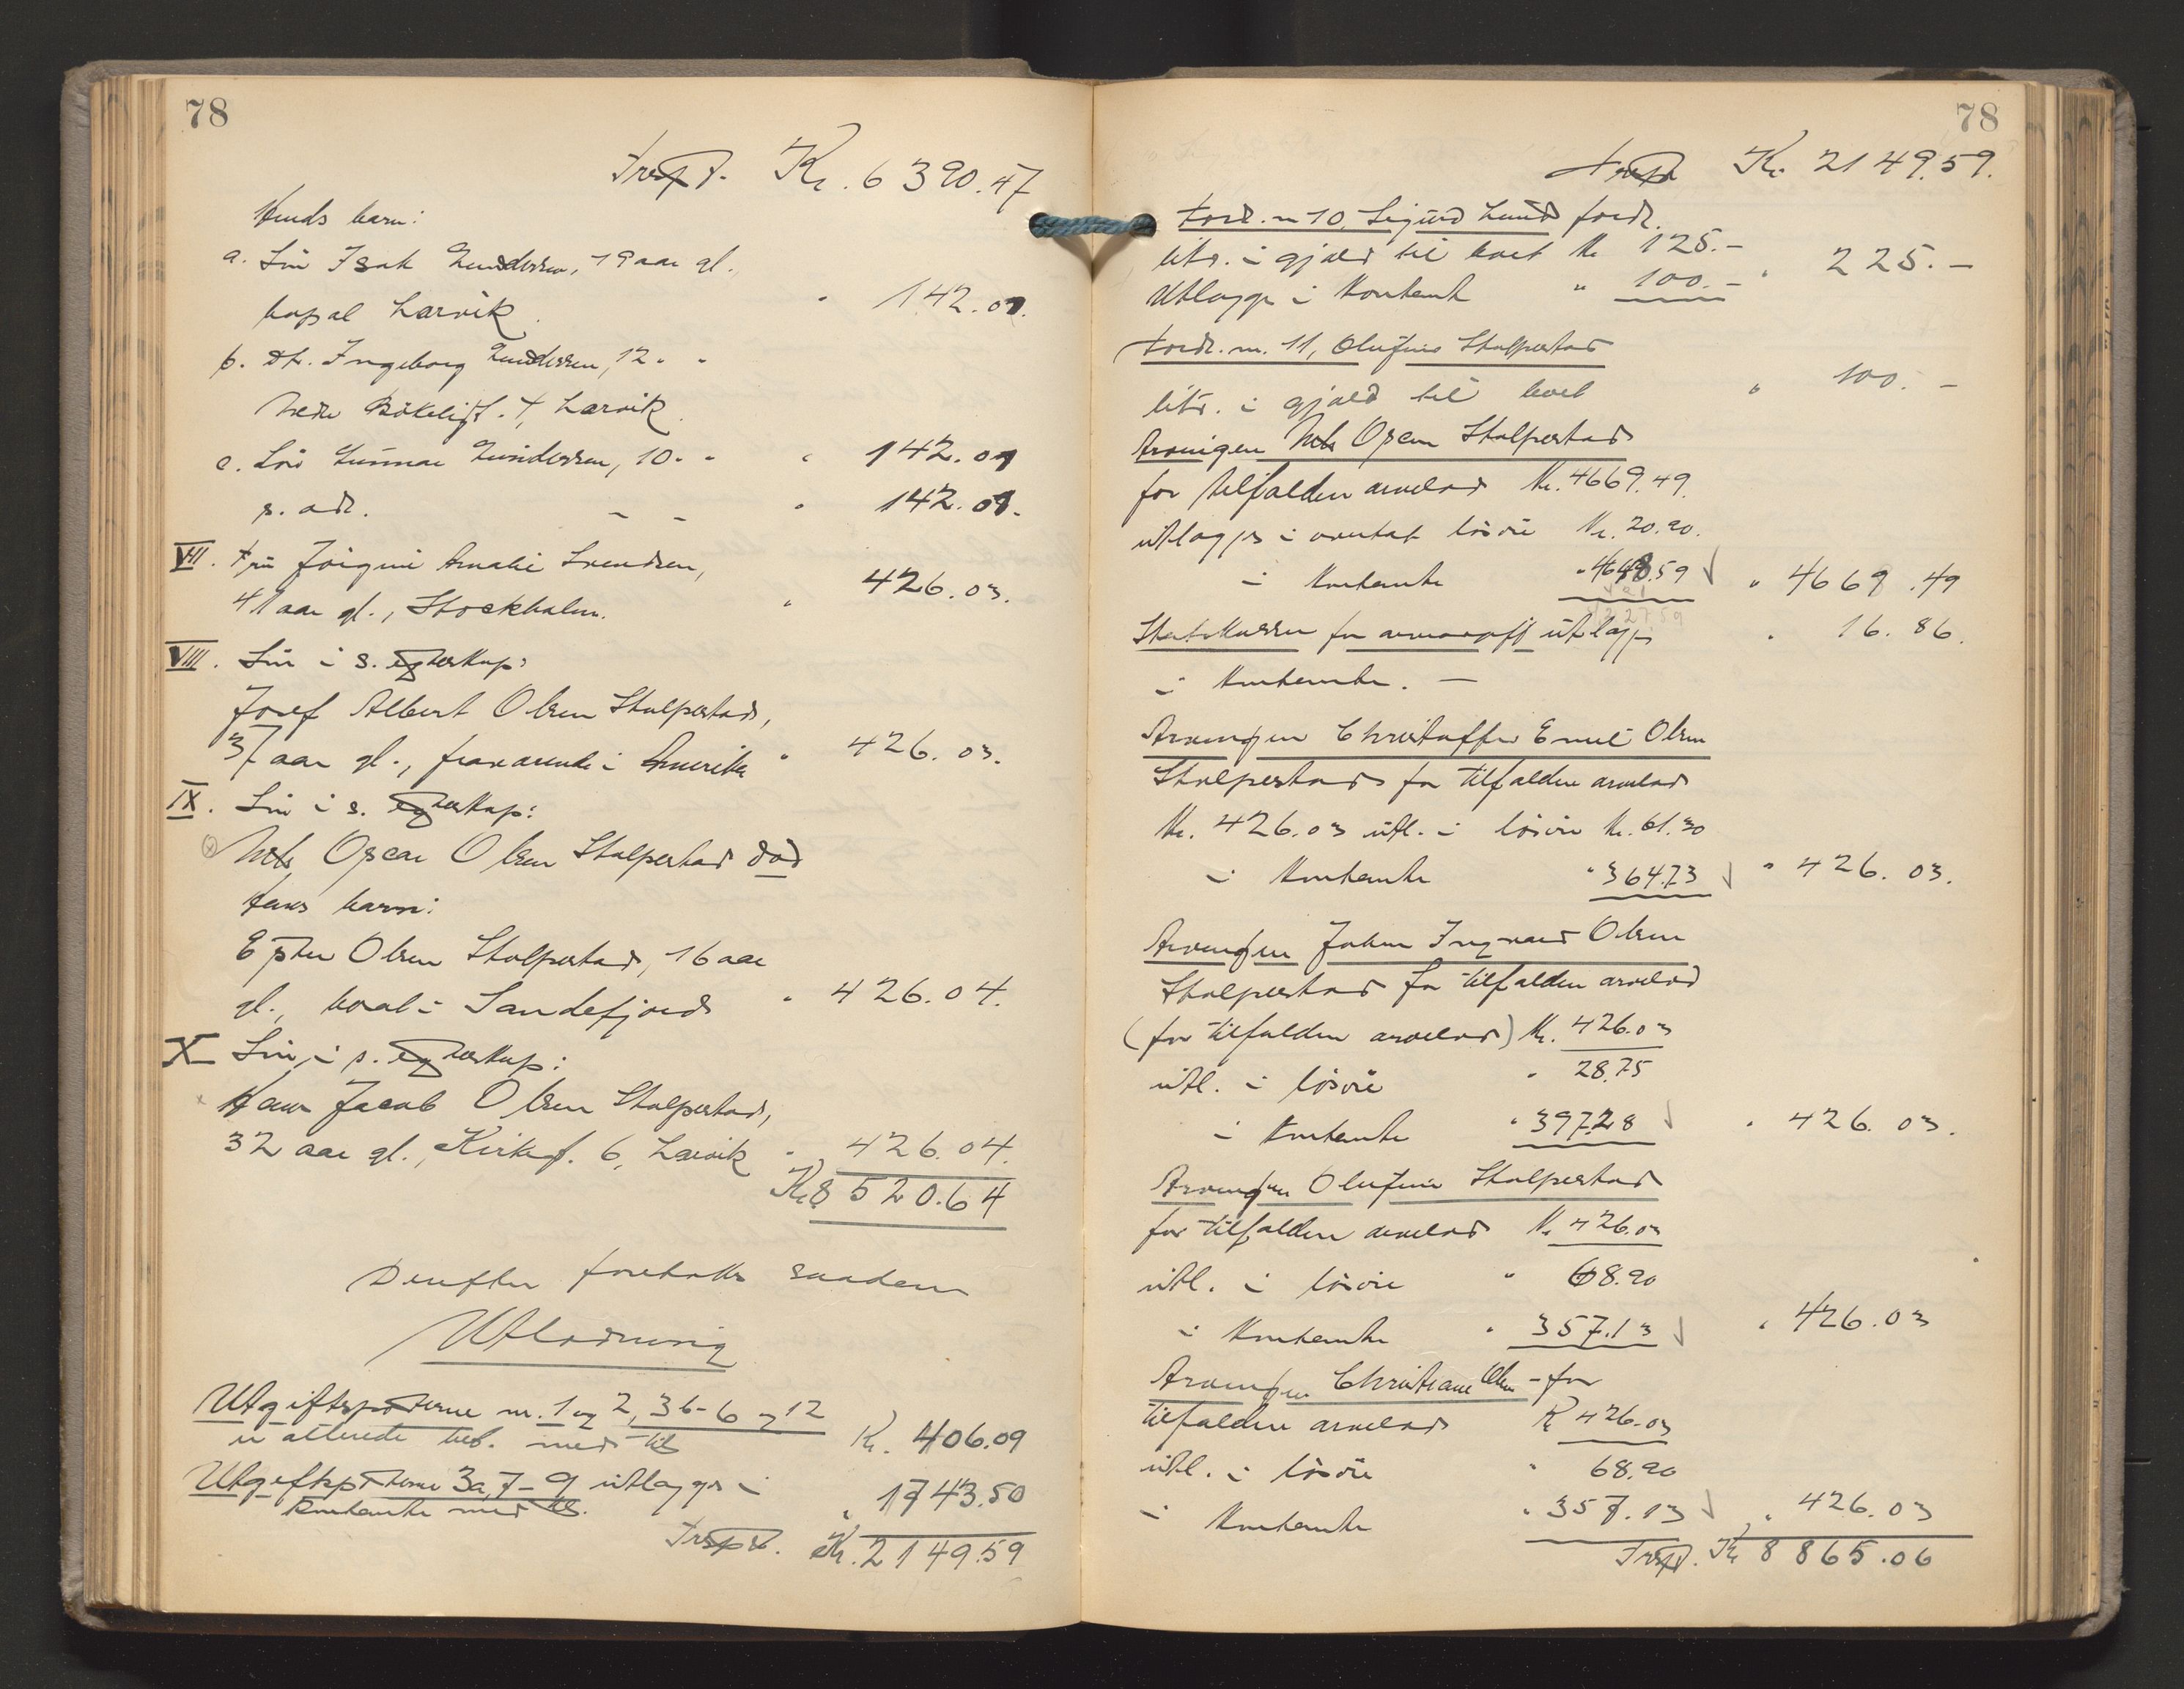 78
Trspt. Kr. 6390.47
Hends barn:
a. Søn Isak Gundersen, 19 aar gl.
bopæl Larvik. " 142.01.
b. Dt. Ingeborg Gundersen, 12 " "
Nedre Bökeligt. 7, Larvik. " 142.01
c. Søn Gunnar Gundersen, 10 " "
s. adr. - - " 142.01.
VII. Fru Amalie Svendsen,
41 aar gl., Stockholm. " 426.03.
VIII. Søn i s. egteskap:
Josef Albert Olsen Stolpestad,
37 aar gl., fraværende i Amerika " 426.03.
IX. Søn i s. egteskap:
Nils Oscar Olsen Stolpestad død
Hans barn:
Ester Olsen Stolpestad, 16 aar
gl., bosat i Sandefjord " 426.04.
X Søn i s. egteskap:
Hans Jacob Olsen Stolpestad,
32 aar gl., Kirkef. 6, Larvik " 426.04.
Kr. 8520.64
Derefter foretokes saadan
Utlodning
Utgiftsposterne nr. 1 og 2, 3b-6 og 12
er allerede bet. med tils Kr. 406.09
Utgiftsposterne 3a, 7-9 utlægges i
kontanter med tils. " 1743.50
Trspt. Kr. 2149.59
78
Trspt Kr. 2149.59.
Fordr. nr 10, Sigurd Lund fordr.
litr. i gjæld til boet Kr 125.-
Utlægges i kontant " 100.- " 225.-
Fordr. nr. 11, Olufine Stolpestad
litr. i gjæld til boet " 100.-
Arvingen Nils Oscar Stolpestad
for tilfalden arvelod Kr. 4669.49.
utlægges i løsøre Kr. 20.90.
i kontanter " 4648.59 " 4669.49
Statskassen for arveavgift utlægges " 16.86.
i kontanter. -
Arvingen Christoffer Emil Olsen
Stolpestad for tilfalden arvelod
Kr. 426.03 utl. i løsøre Kr. 61.30
i kontanter " 364.73 " 426.03.
Arvingen Johan Ingvard Olsen
Stolpestad for tilfalden arvelod
(for tilfalden arvelod) Kr. 426.03
utl. i løsøre " 28.75
i kontanter " 397.28 " 426.03.
Arvingen Olufine Stolpestad
for tilfalden arvelod Kr 426.03
utl. i løsøre " 68.90
i kontanter " 357.13 " 426.03
Arvingen Christiane Olsen - for
tilfalden arvelod Kr 426.03
utl. i løsøre " 68.90
i kontanter " 357.13 " 426.03
Trspt. Kr 8865.06